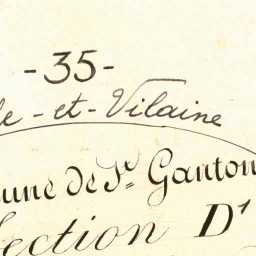 -35-
le-et-Vilaine
une de St. Ganton
Section D¹